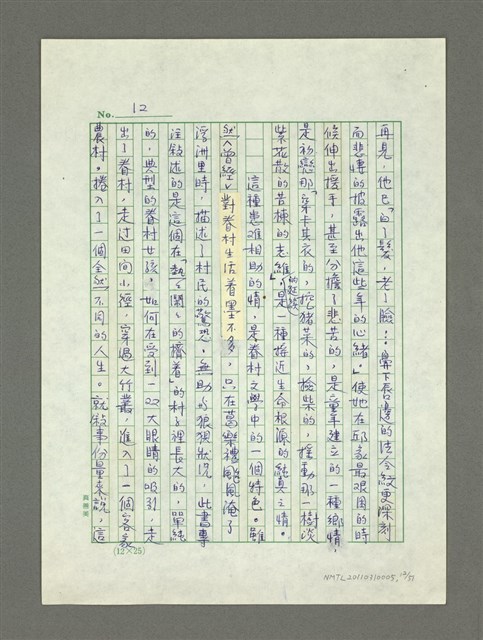 No. 12
再見，他已「白了髮，老了臉…鼻下唇邊的法令紋更深刻
而悲悽的披露出他這些年的心緒」使她在邱家最艱困的時
候伸出援手，甚至分擔了悲苦的，是童年建立的一種鄉情，
是初戀那「穿卡其衣的，挖豬菜的，撿柴的，搖動那一樹淡
紫花散的苦楝的志維」的延續，是一種接近生命根源的純真之情。
這種患難相助的情，是眷村文學中的一個特色。雖
然〈曾經〉對眷村生活着墨不多，只在葛樂禮颱風淹了
浮洲里時，描述了村民的驚恐，無助的狼狽狀況，此書專
注敘述的是這個在「熱鬧的擠着」的村子裡長大的，單純
的，典型的眷村女孩，如何在受到一双大眼睛的吸引，走
出了眷村，走过田间小徑，穿過大竹叢，進入了一個客家
農村。捲入了一個全然不同的人生。就敘事份量來說，這
(12×25)
NMTL20110710005, 12/37